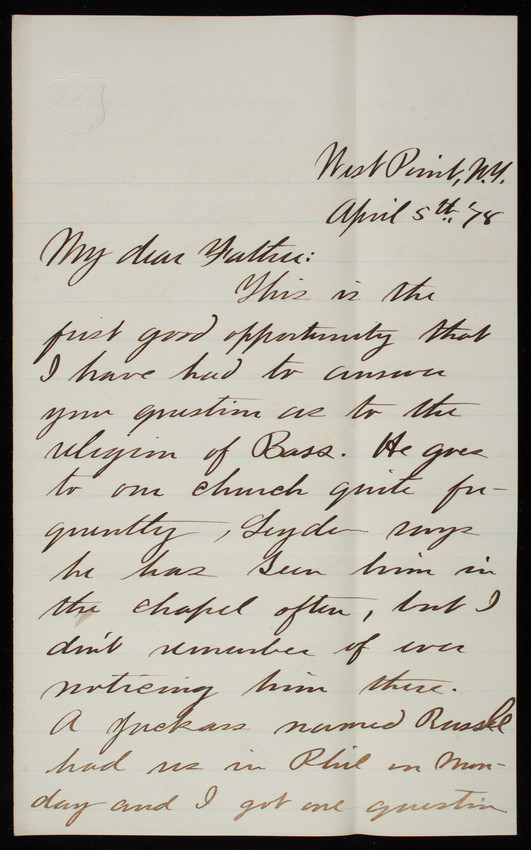 West Point, N.Y.
April 5th. '78
My dear Father:
This is the
first good opportunity that
I have had to answer
your question as to the
religion of Bass. He goes
to our church quite fre-
quently, Snyder says
he has seen him in
the chapel often, but I
don't remember of ever
noticing him there.
A Jackass named Russel
had us in Phil on Mon-
day and I got one question